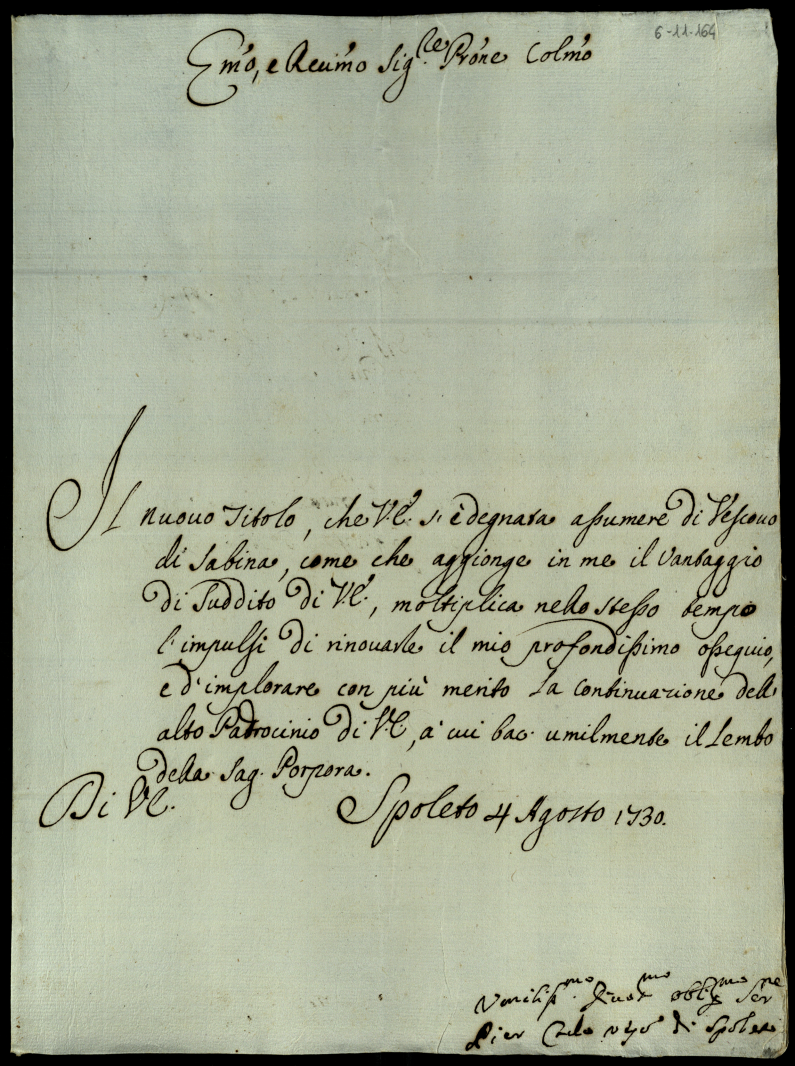 6-11-164
Em̃o, e Reum̃o Sig.re Prõne Colm̃o
Il nuouo Titolo, che V.E. s'è degnata assumere di Vescouo
di Sabina, come che aggionge in me il vantaggio
di Suddito di V.E., moltiplica nello stesso tempo
l'impulsi di rinouarle il mio profondissimo ossequio,
e d'implorare con più merito la continuazione dell'
alto Padrocinio di V.E, a' cui bac. umilmente il Lembo
della Sag. Porpora.
Di VE. Spoleto 4 Agosto 1730.
Vmiliss.mo Diuot.mo obblig.mo Ser.re
Pier Vẽs.o di Spoleto